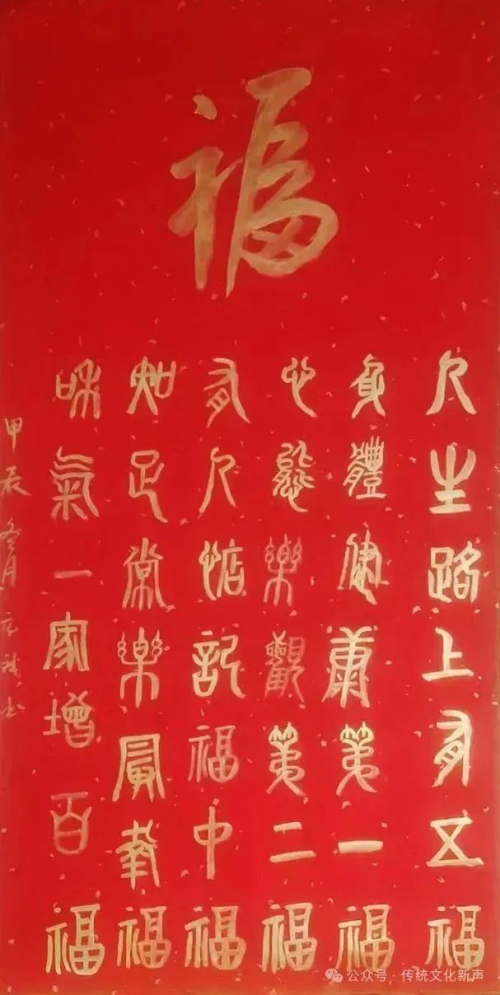 福
人生路上有五福
身體健康第一福
心態樂觀第二福
有人惦記福中福
知足常樂最幸福
咊氣一家增百福
甲辰冬月 书
公众号 · 传统文化新声